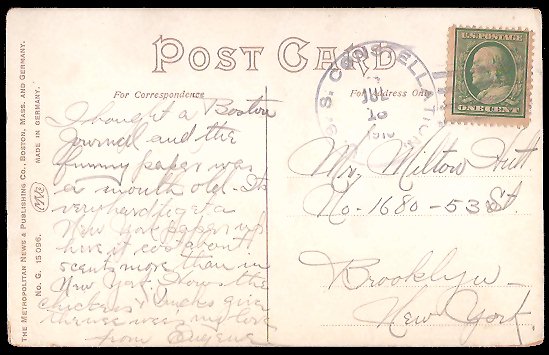 POST CARD
For Correspondence
For Address Only
U.S. POSTAGE
ONE CENT
U.S.S. CONSTELLATION
JUL
1912
THE METROPOLITAN NEWS & PUBLISHING CO., BOSTON, MASS. AND GERMANY.
MADE IN GERMANY.
No. G. 15096.
I bought a Boston
Journal and the
funny paper was
a month old. Its
very hard to get a
New York paper up
here it cost about
5 cents more than in
New York. How's the
chickens & ducks give
them my love
from Eugene
Mr. Milton
No - 1680 - 53 St
Brooklyn
New York.